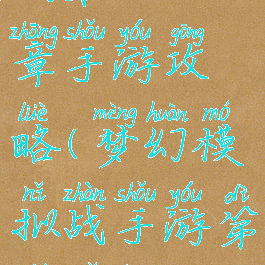 zhāng shǒu yóu gōng
章手游攻
lüè mèng huàn mó
略(梦幻模
nǐ zhàn shǒu yóu dì
拟战手游第